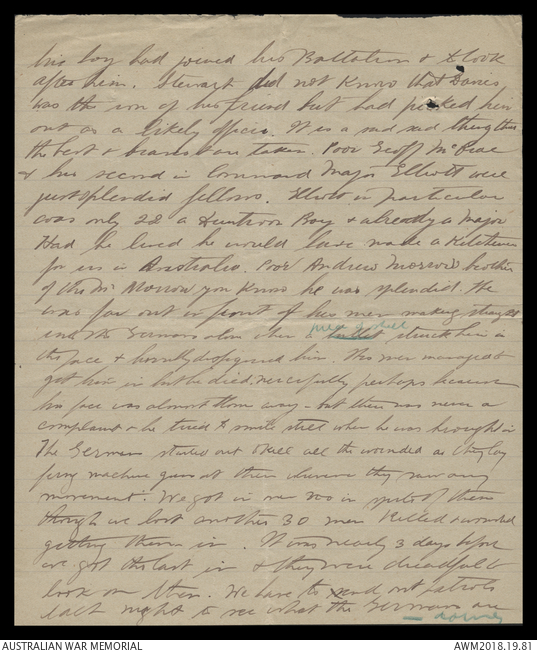 his boy had joined his Battalion & to look
after him. Stewart did not know that Davis
was the son of his friend but had picked him
out as a likely officer. It is a sad sad thing this
the best & bravest are taken. Poor Geoff McCrae
& his second in Command Major Elliott were
just splendid fellows. Elliott in particular
was only 22 a Duntroon Boy & already a Major
Had he lived he would have made a Kitchener
for us in Australia. Poor Andrew Morrow brother
of the Mr Morrow you know he was splendid. He
was far out in front of his men making straight
into the Germans alone when a piece of shell struck him in
the face & horribly disfigured him. His men managed to
get him in but he died, mercifully perhaps because
his face was almost blown away - but there was never a
complaint & he tried to smile still when he was brought in
The Germans started out to kill all the wounded as they lay
firing machine guns at them whenever they saw any
movement. We got in over 200 in spite of them
though we lost another 30 men killed & wounded
getting them in. It was nearly 3 days before
we got the last in & they were dreadful to
look on then. We have to send out patrols
each night to see what the Germans are
— doing
AUSTRALIAN WAR MEMORIAL
AWM2018.19.81